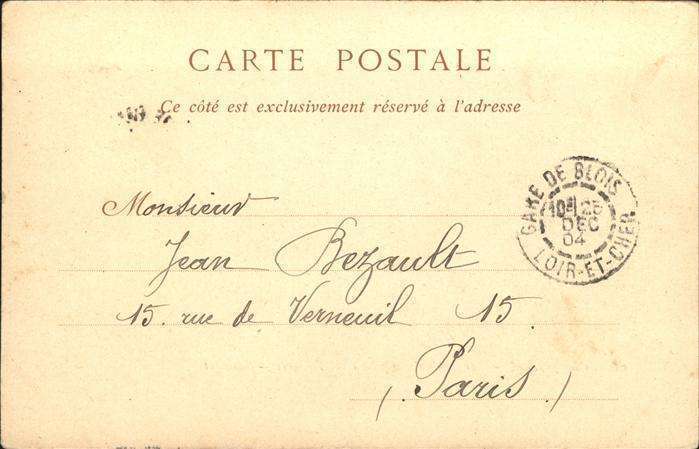 CARTE POSTALE
Ce côté est exclusivement réservé à l'adresse
GARE DE BLOIS
25
DEC
04
LOIR-ET-CHER
Monsieur
Jean Bezault
15. rue de Verneuil 15.
(Paris)